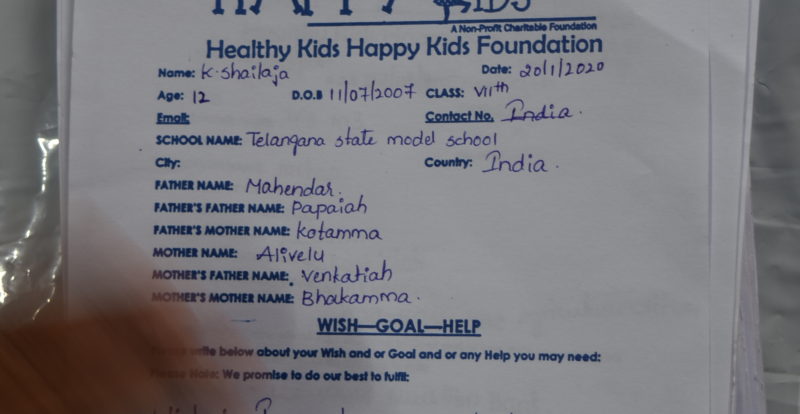 HAPPY KIDS
A Non-Profit Charitable Foundation
Healthy Kids Happy Kids Foundation
Name: K. Shailaja Date: 20/1/2020
Age: 12 D.O.B 11/07/2007 CLASS: VIIth
Email: Contact No. India.
SCHOOL NAME: Telangana state model school
City: Country: India.
FATHER NAME: Mahendar.
FATHER'S FATHER NAME: Papaiah
FATHER'S MOTHER NAME: Kotamma
MOTHER NAME: Alivelu
MOTHER'S FATHER NAME: Venkatiah
MOTHER'S MOTHER NAME: Bhakamma.
WISH—GOAL—HELP
write below about your Wish and or Goal and or any Help you may need:
Please Note: We promise to do our best to fulfil: